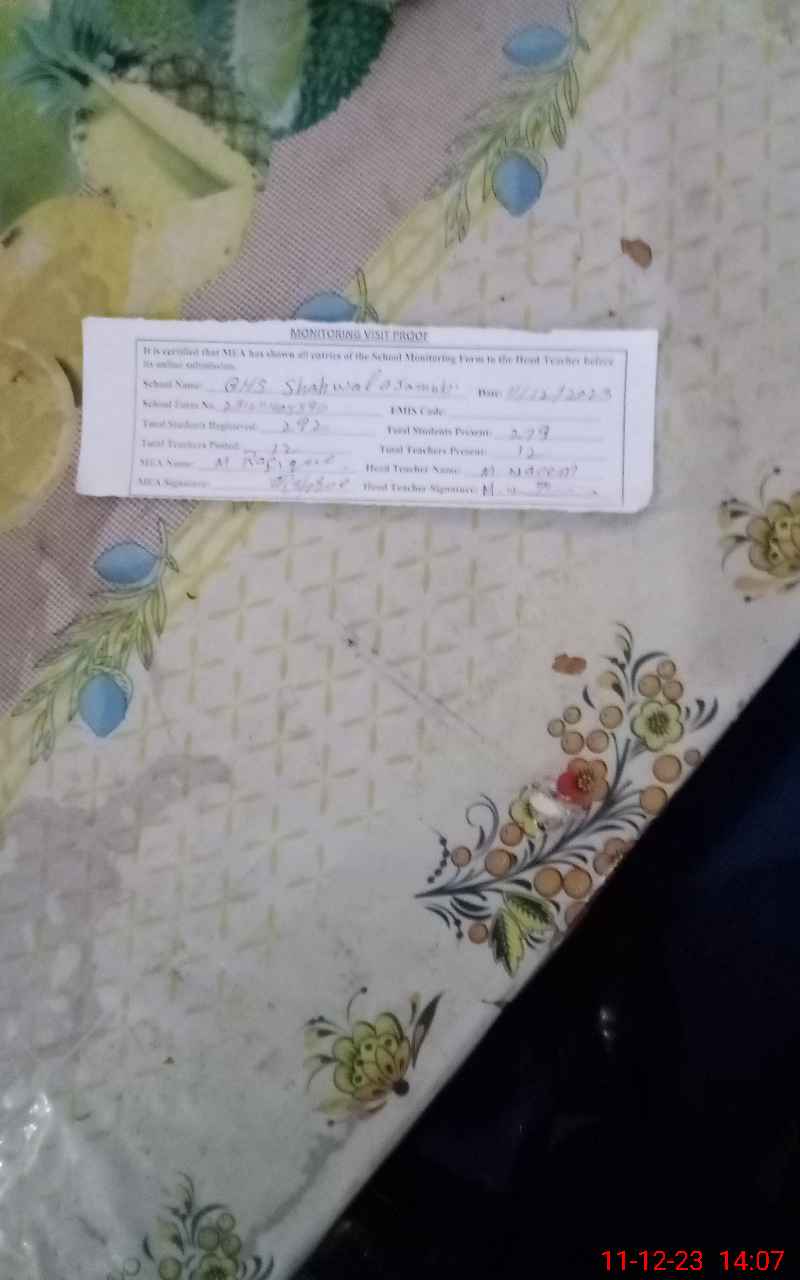 MONITORING VISIT PROOF
It is certified that MEA has shown all entries of the School Monitoring Form to the Head Teacher before
its online submission.
School Name: GHS Shahwal Date: 11/12/2023
School Form No. EMIS Code:
Total Students Registered: 292 Total Students Present: 279
Total Teachers Posted: 12 Total Teachers Present: 12
MEA Name: M Rafique Head Teacher Name: M Naeem
MEA Signature: Head Teacher Signature: M
11-12-23 14:07